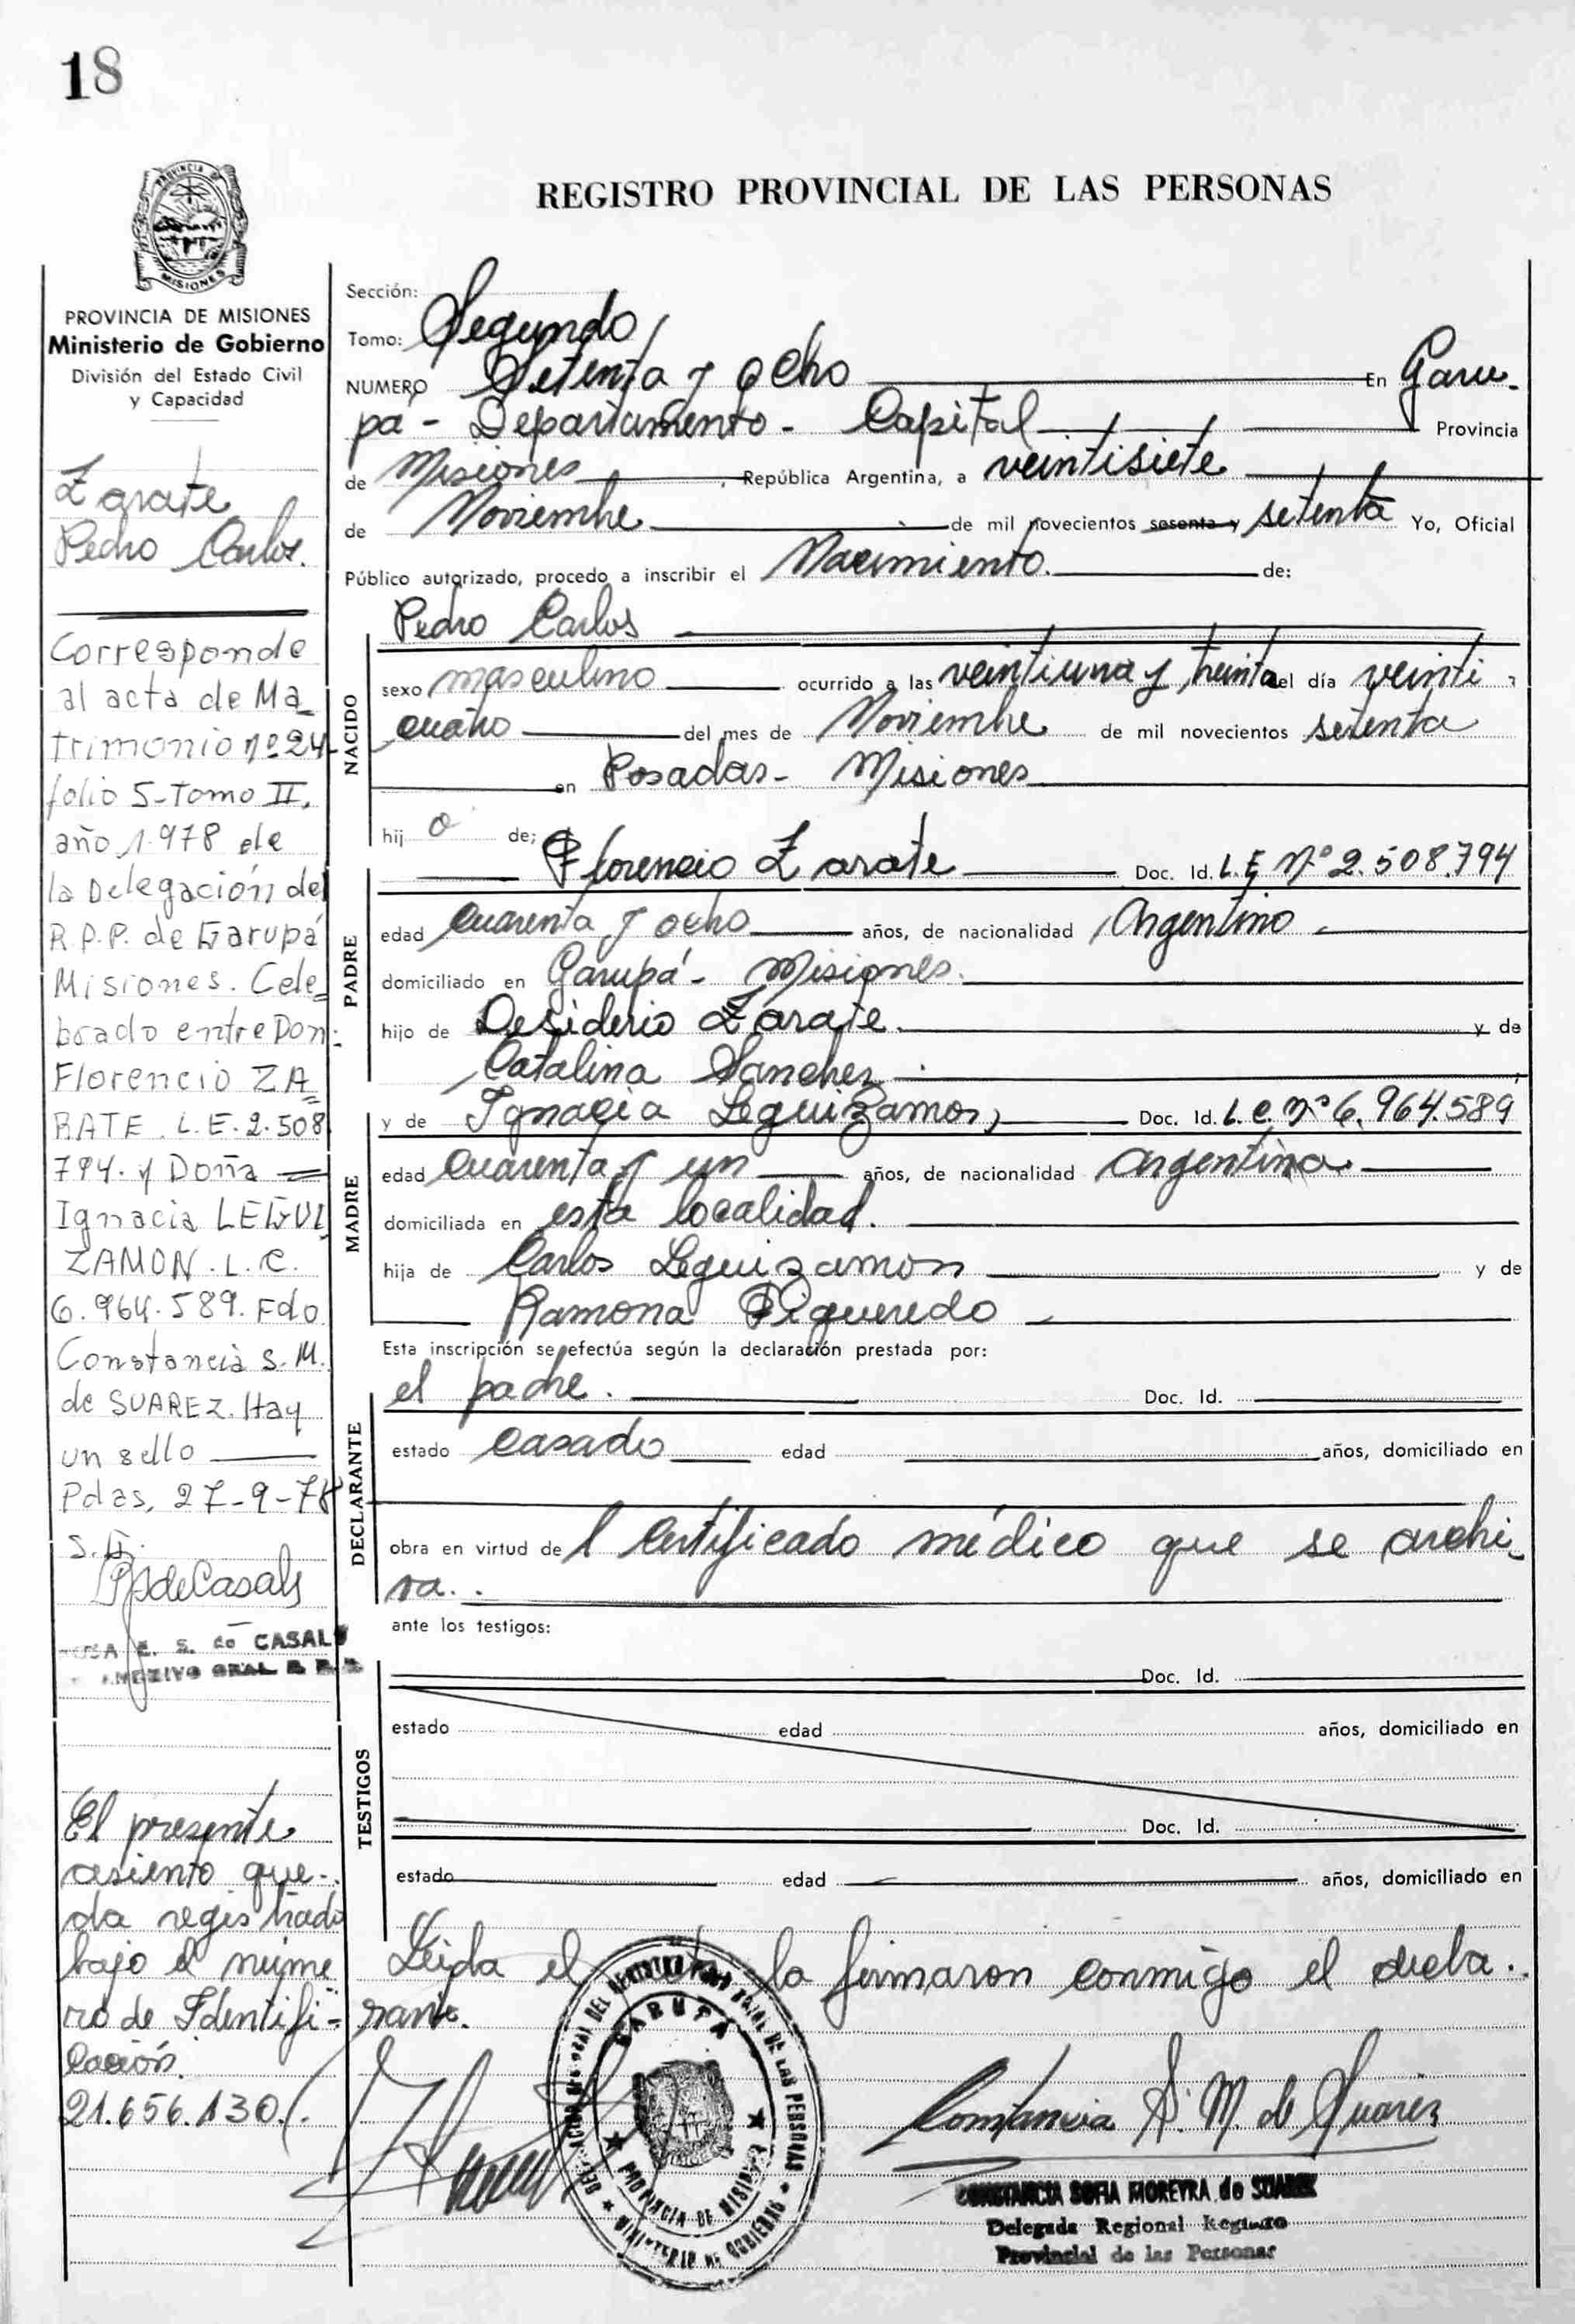 18
PROVINCIA
MISIONES
REGISTRO PROVINCIAL DE LAS PERSONAS
PROVINCIA DE MISIONES
Ministerio de Gobierno
División del Estado Civil
y Capacidad
Zarate
Pedro Carlos.
Corresponde
al acta de Ma_
trimonio nº 24
folio 5-Tomo II.
año 1.978 de
la Delegación del
R.P.P. de Garupá
Misiones. Cele_
brado entre Don:
Florencio ZA=
RATE. L.E. 2.508
794. y Doña
Ignacia LEGUI
ZAMON. L.C.
6.964.589. Fdo
Constancia S.M.
de SUAREZ. Hay
un sello
Pdas, 27-9-78
de Casals
E. S. de CASALS
El presente
asiento que-
da registrado
bajo el núme
ro de Identifi-
cación.
21.656.130./.
Sección:
Tomo: Segundo
NUMERO Setenta y ocho En Garu-
pá - Departamento - Capital Provincia
de Misiones, República Argentina, a veintisiete
de Noviembre de mil novecientos sesenta y setenta Yo, Oficial
Público autorizado, procedo a inscribir el Nacimiento. de:
Pedro Carlos
NACIDO
sexo masculino ocurrido a las veintiuna y treinta del día veinti-
cuatro del mes de Noviembre de mil novecientos setenta
en Posadas - Misiones
hij o de;
Florencio Zarate Doc. Id. L.E Nº 2.508.794
PADRE
edad cuarenta y ocho años, de nacionalidad Argentino
domiciliado en Garupá - Misiones.
hijo de Desiderio Zarate. y de
Catalina Sanchez
y de Ignacia Leguizamon, Doc. Id. L.C. nº 6.964.589
MADRE
edad cuarenta y un años, de nacionalidad Argentina
domiciliada en esta localidad.
hija de Carlos Leguizamon y de
Ramona Figueredo
Esta inscripción se efectúa según la declaración prestada por:
el padre. Doc. Id.
DECLARANTE
estado casado edad años, domiciliado en
obra en virtud de l certificado médico que se archi-
va.
ante los testigos:
Doc. Id.
TESTIGOS
estado edad años, domiciliado en
Doc. Id.
estado edad años, domiciliado en
Leida el la firmaron conmigo el decla-
rante.
GARUPA
PROVINCIA DE MISIONES
MINISTERIO DE GOBIERNO
Constancia S. M. de Suarez
CONSTANCIA SOFIA MOREYRA de SUAREZ
Delegada Regional Registro
Provincial de las Personas